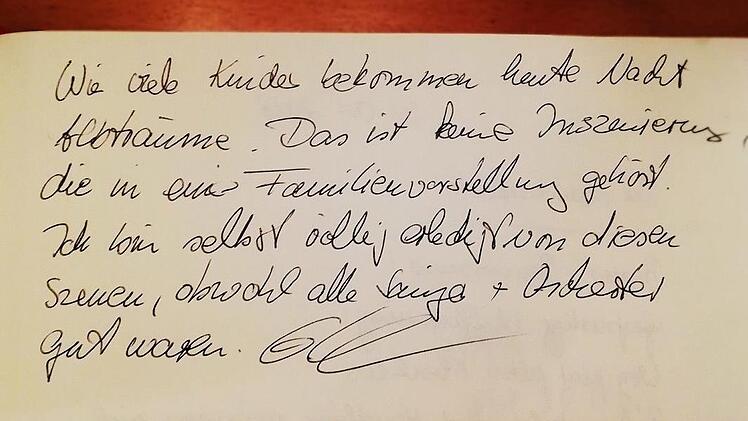 Wie viele Kinder bekommen heute Nacht
Albträume. Das ist keine Inszenierung,
die in eine Familienvorstellung gehört.
Ich bin selbst völlig erledigt von diesen
Szenen, obwohl alle Sänger + Orchester
gut waren.